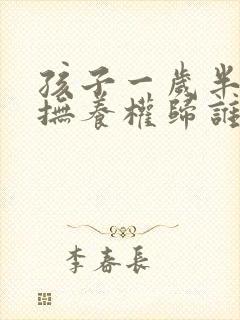 孩子一歲半
撫養權歸誰
李春長